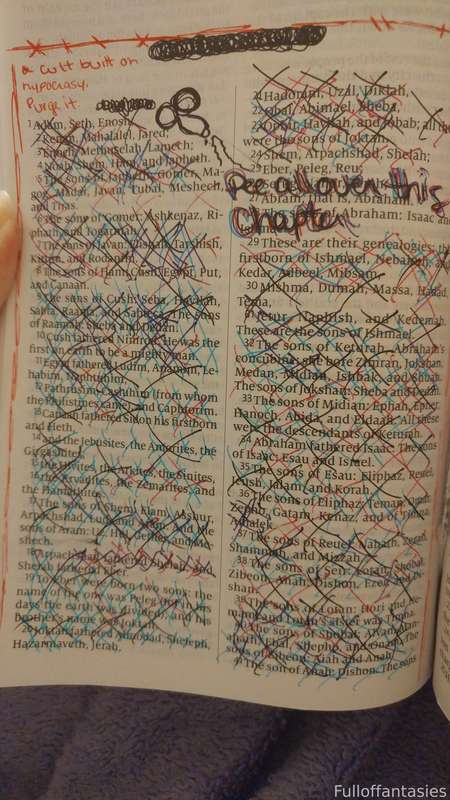 a cult built on
hypocrisy.
Purge it.
1Adam, Seth, Enosh,
2Kenan, Mahalalel, Jared,
3Enoch, Methuselah, Lamech;
4Noah, Shem, Ham, and Japheth.
5The sons of Japheth: Gomer, Ma-
gog, Madai, Javan, Tubal, Meshech,
and Tiras.
6The sons of Gomer: Ashkenaz, Ri-
phath, and Togarmah.
7The sons of Javan: Elishah, Tarshish,
Kittim, and Rodanim.
8The sons of Ham: Cush, Egypt, Put,
and Canaan.
9The sons of Cush: Seba, Havilah,
Sabta, Raama, and Sabteca. The sons
of Raamah: Sheba and Dedan.
10Cush fathered Nimrod. He was the
first on earth to be a mighty man.
11Egypt fathered Ludim, Anamim, Le-
habim, Naphtuhim,
12Pathrusim, Casluhim (from whom
the Philistines came), and Caphtorim.
13Canaan fathered Sidon his firstborn
and Heth,
14and the Jebusites, the Amorites, the
Girgashites,
15the Hivites, the Arkites, the Sinites,
16the Arvadites, the Zemarites, and
the Hamathites.
17The sons of Shem: Elam, Asshur,
Arpachshad, Lud, and Aram. And the
sons of Aram: Uz, Hul, Gether, and Me-
shech.
18Arpachshad fathered Shelah, and
Shelah fathered Eber.
19To Eber were born two sons: the
name of the one was Peleg (for in his
days the earth was divided), and his
brother's name was Joktan.
20Joktan fathered Almodad, Sheleph,
Hazarmaveth, Jerah,
21Hadoram, Uzal, Diklah,
22Obal, Abimael, Sheba,
23Ophir, Havilah, and Jobab; all the
were the sons of Joktan.
24Shem, Arpachshad, Shelah;
25Eber, Peleg, Reu;
Pee all over this
Chapter
27Abram, that is, Abraham.
Abraham: Isaac and
29These are their genealogies: the
firstborn of Ishmael, Nebaioth, and
Kedar, Adbeel, Mibsam,
30Mishma, Dumah, Massa, Hadad,
Tema,
31Jetur, Naphish, and Kedemah.
These are the sons of Ishmael.
32The sons of Keturah, Abraham's
concubine: she bore Zimran, Jokshan,
Medan, Midian, Ishbak, and Shuah.
The sons of Jokshan: Sheba and Dedan.
33The sons of Midian: Ephah, Epher,
Hanoch, Abida, and Eldaah. All these
were the descendants of Keturah.
34Abraham fathered Isaac. The sons
of Isaac: Esau and Israel.
35The sons of Esau: Eliphaz, Reuel,
Jeush, Jalam, and Korah.
36The sons of Eliphaz: Teman, Omar,
Zepho, Gatam, Kenaz, and of Timna,
Amalek.
37The sons of Reuel: Nahath, Zerah,
Shammah, and Mizzah.
38The sons of Seir: Lotan, Shobal,
Zibeon, Anah, Dishon, Ezer, and Di-
shan.
39The sons of Lotan: Hori and He-
mam; and Lotan's sister was Timna.
40The sons of Shobal: Alvan, Man-
ahath, Ebal, Shepho, and Onam. The
sons of Zibeon: Aiah and Anah.
41The son of Anah: Dishon. The sons
Fulloffantasies